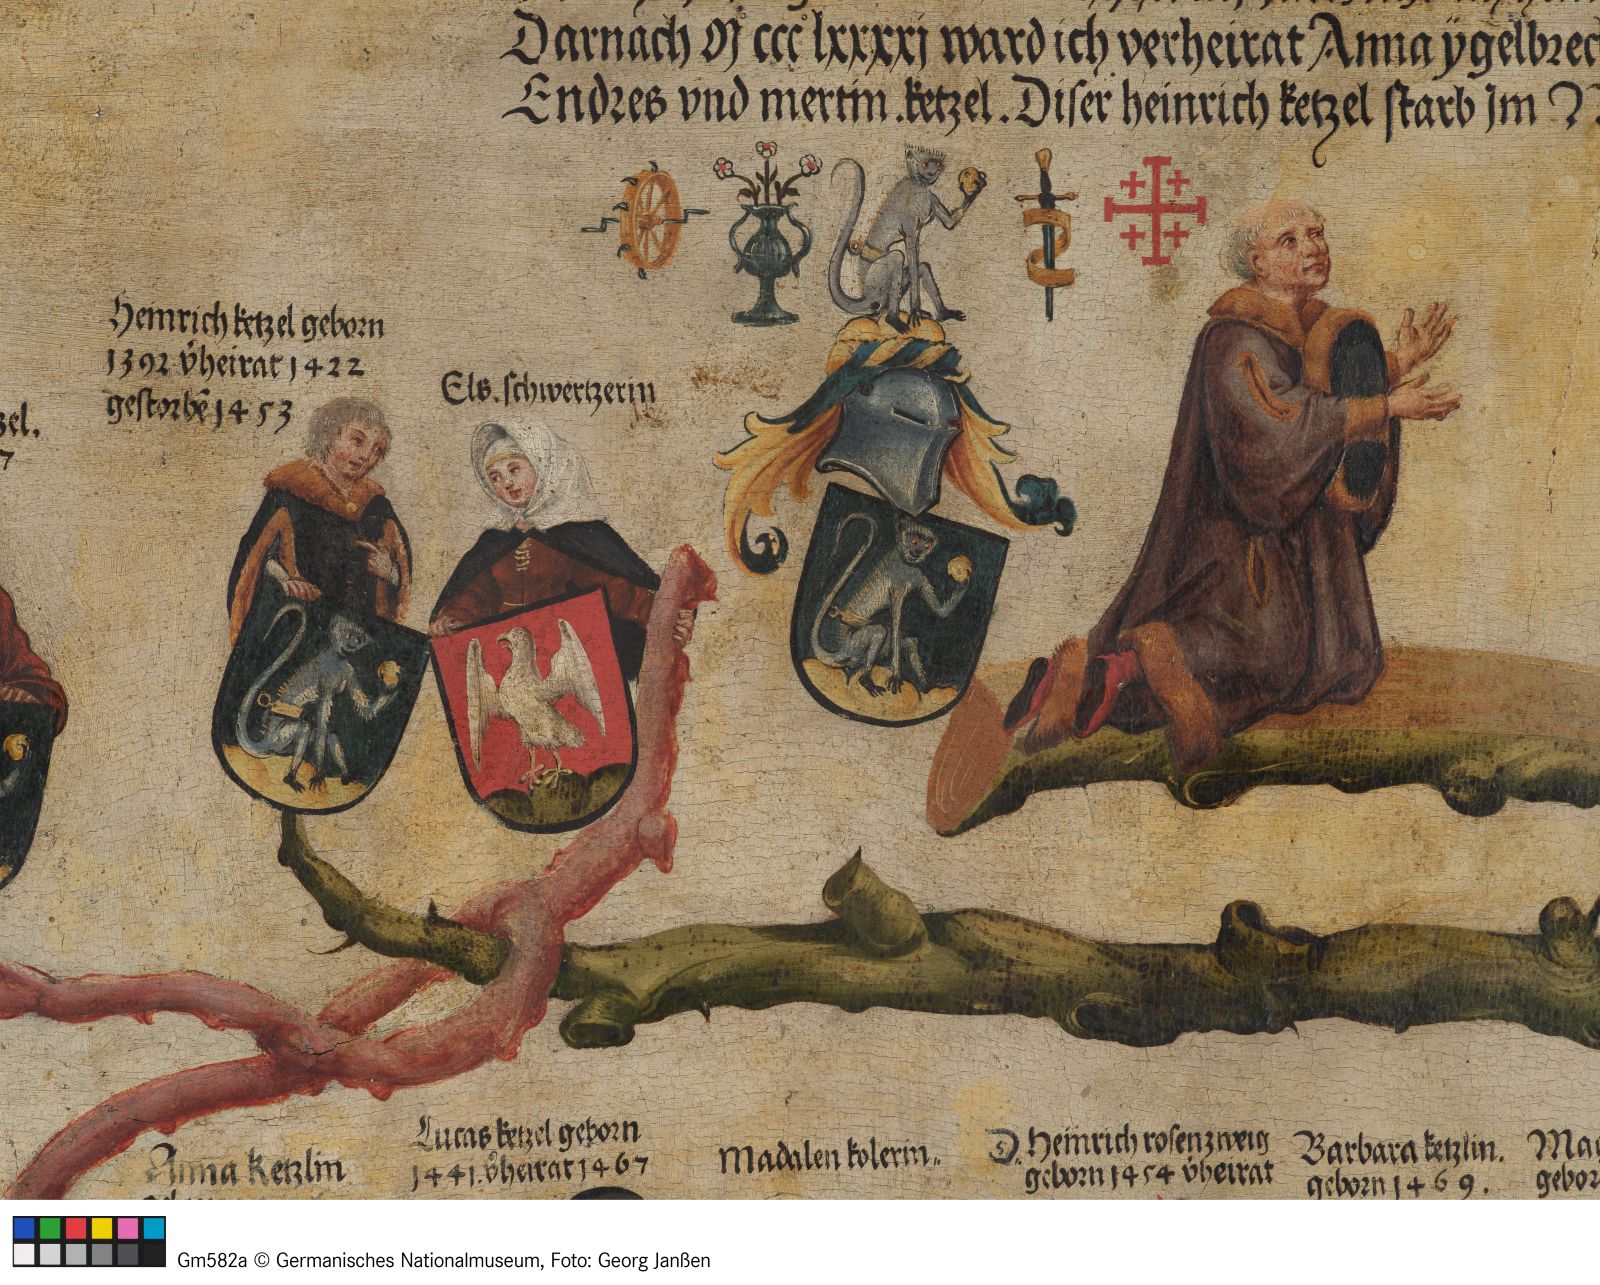 Darnach M ccc lxxxxj ward ich verheirat Anna ygelbrec
Endres vnd mertin .ketzel. Diser heinrich ketzel starb Jm
Heinrich ketzel geborn
1392 v̊heirat 1422
gestorbē 1453
Els. schwertzerin
zel.
7
Anna ketzlin
Lucas ketzel geborn
1441. v̊heirat 1467
Madalen kolerin.
D. Heinrich rosenzweig
geborn 1454 v̊heirat
Barbara ketzlin.
geborn 1469.
Ma
gebor
Gm582a © Germanisches Nationalmuseum, Foto: Georg Janßen